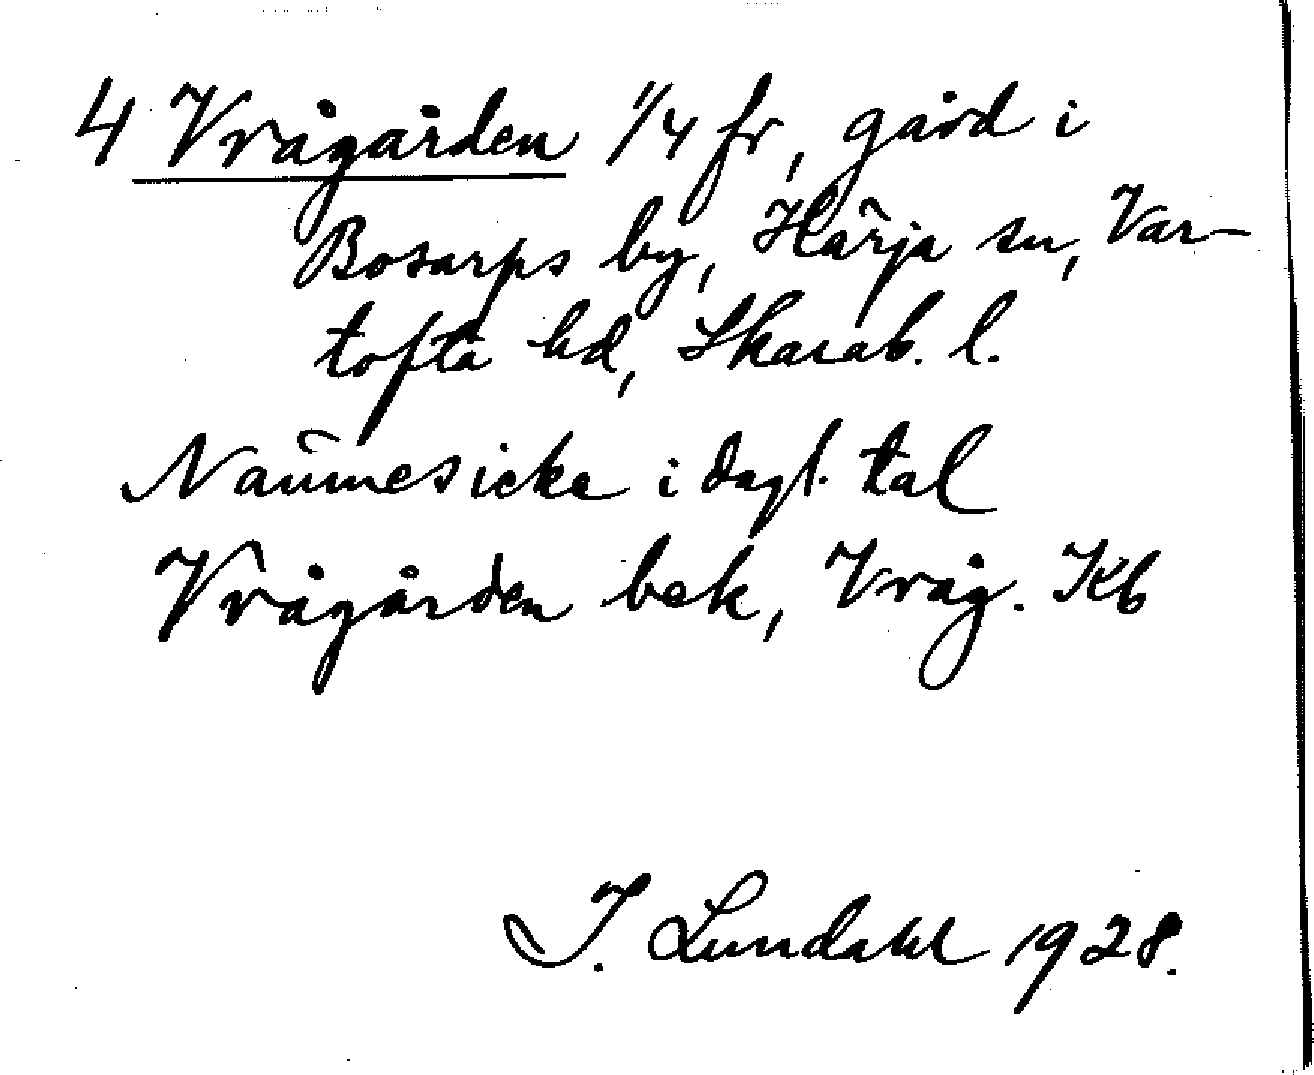 4 Vrågården 1/4 fr, gård i
Bosarps by, Härja sn, Var-
tofta hd, Skarab. l.
Nämnes icke i dagl. tal
Vrågården bek, Vråg. Kb
I. Lundahl 1928.